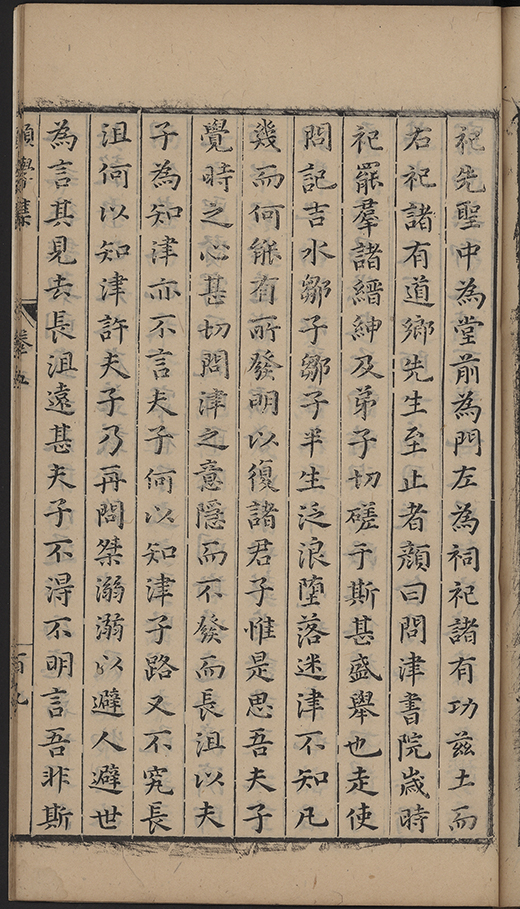 祀先聖中為堂前為門左為祠祀諸有功茲土而
右祀諸有道鄉先生至止者顔曰問津書院歲時
祀罷羣諸縉紳及弟子切磋于斯甚盛舉也走使
問記吉水鄒子鄒子半生泛浪墮落迷津不知凡
幾而何能有所發明以復諸君子惟是思吾夫子
覺時之心甚切問津之意隱而不發而長沮以夫
子為知津亦不言夫子何以知津子路又不究長
沮何以知津許夫子乃再問桀溺溺以避人避世
為言其見去長沮遠甚夫子不得不明言吾非斯
願學集
卷五
百九